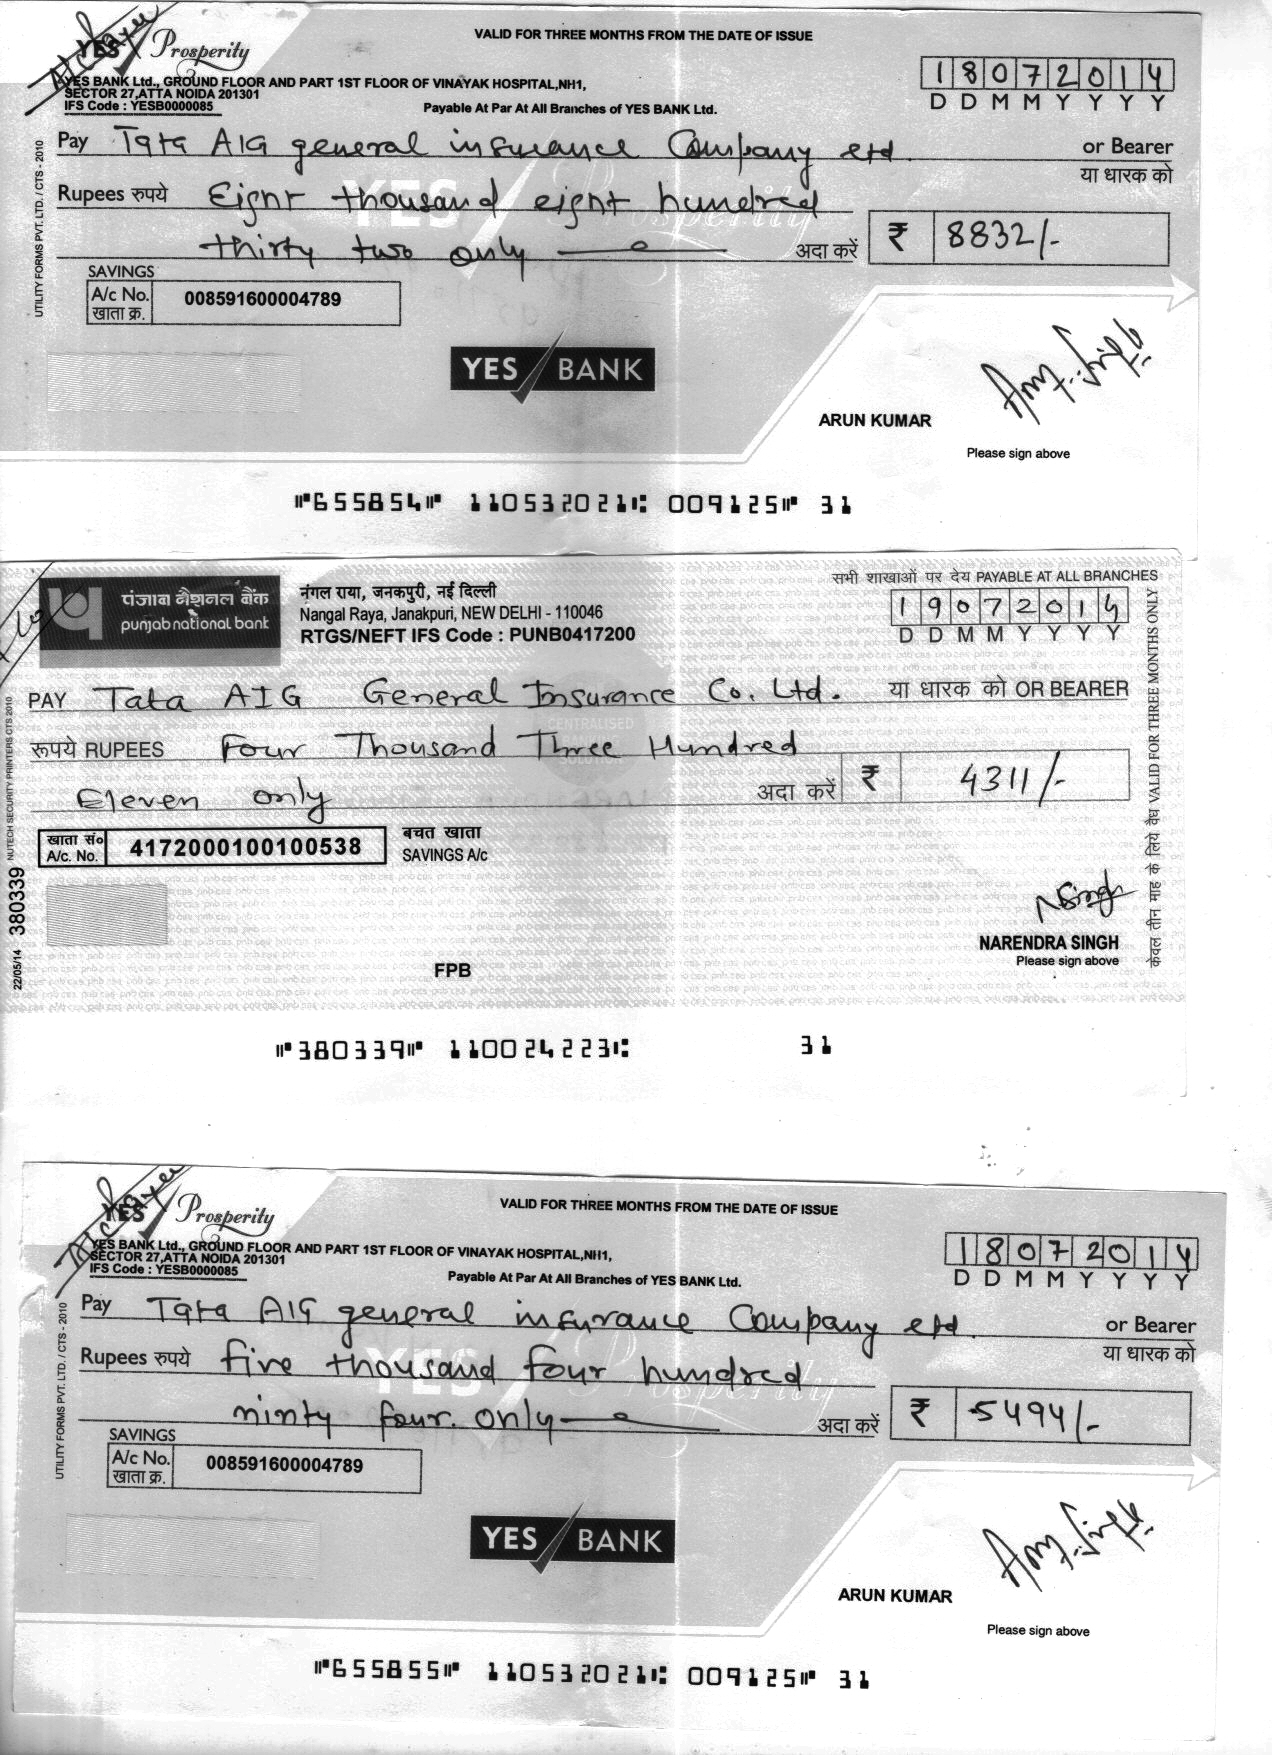 A/c Payee
YES Prosperity
VALID FOR THREE MONTHS FROM THE DATE OF ISSUE
YES BANK Ltd., GROUND FLOOR AND PART 1ST FLOOR OF VINAYAK HOSPITAL,NH1,
SECTOR 27,ATTA NOIDA 201301
IFS Code : YESB0000085
Payable At Par At All Branches of YES BANK Ltd.
18072014
D D M M Y Y Y Y
Pay Tata AIG general insurance Company Ltd. or Bearer
या धारक को
Rupees रुपये Eight thousand eight hundred
thirty two only अदा करें ₹ 8832/-
YES Prosperity
SAVINGS
A/c No. 008591600004789
खाता क्र.
UTILITY FORMS PVT. LTD. / CTS - 2010
YES BANK
ARUN KUMAR
Please sign above
⑈655854⑈ 110532021⑆ 009125⑈ 31
पंजाब नैशनल बैंक
punjab national bank
नंगल राया, जनकपुरी, नई दिल्ली
Nangal Raya, Janakpuri, NEW DELHI - 110046
RTGS/NEFT IFS Code : PUNB0417200
सभी शाखाओं पर देय PAYABLE AT ALL BRANCHES
19072014
D D M M Y Y Y Y
PAY Tata AIG General Insurance Co. Ltd. या धारक को OR BEARER
रूपये RUPEES Four Thousand Three Hundred
Eleven only अदा करें ₹ 4311/-
CENTRALISED
खाता सं०
A/c. No. 4172000100100538
बचत खाता
SAVINGS A/c
NUTECH SECURITY PRINTERS CTS 2010
22/05/14 380339
केवल तीन माह के लिये वैध VALID FOR THREE MONTHS ONLY
NSingh
NARENDRA SINGH
Please sign above
FPB
⑈380339⑈ 110024223⑆ 31
A/c Payee
YES Prosperity
VALID FOR THREE MONTHS FROM THE DATE OF ISSUE
YES BANK Ltd., GROUND FLOOR AND PART 1ST FLOOR OF VINAYAK HOSPITAL,NH1,
SECTOR 27,ATTA NOIDA 201301
IFS Code : YESB0000085
Payable At Par At All Branches of YES BANK Ltd.
18072014
D D M M Y Y Y Y
Pay Tata AIG general insurance Company Ltd. or Bearer
या धारक को
Rupees रुपये five thousand four hundred
ninty four. only अदा करें ₹ 5494/-
YES Prosperity
SAVINGS
A/c No. 008591600004789
खाता क्र.
UTILITY FORMS PVT. LTD. / CTS - 2010
YES BANK
ARUN KUMAR
Please sign above
⑈655855⑈ 110532021⑆ 009125⑈ 31